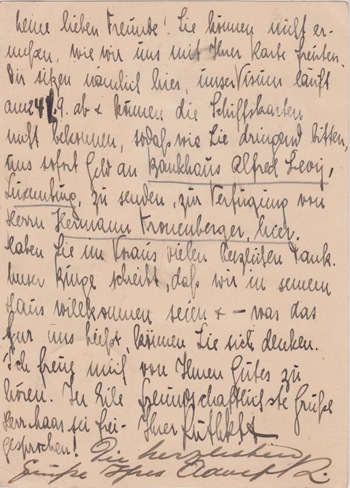 Meine lieben Freunde! Sie können nicht er-
messen, wie wir uns mit Ihrer Karte freuten.
Wir sitzen nämlich hier, unser Visum läuft
am 24./9. ab & können die Schiffskarten
nicht bekommen, sodaß wir Sie dringend bitten,
uns sofort Geld an Bankhaus Alfred Levy,
Luxemburg, zu senden, zur Verfügung von
Herrn Hermann Fronenberger, hier.
Haben Sie im Voraus vielen herzlichen Dank.
Unser Junge schreibt, daß wir in seinem
Haus willkommen seien & – was das
für uns heißt, können Sie sich denken.
Ich freue mich von Ihnen Gutes zu
hören. In Eile freundschaftlichste Grüße
Herr Haas sei frei- Ihre
gesprochen! Die herzlichsten
Grüße Ihres Adolf R.